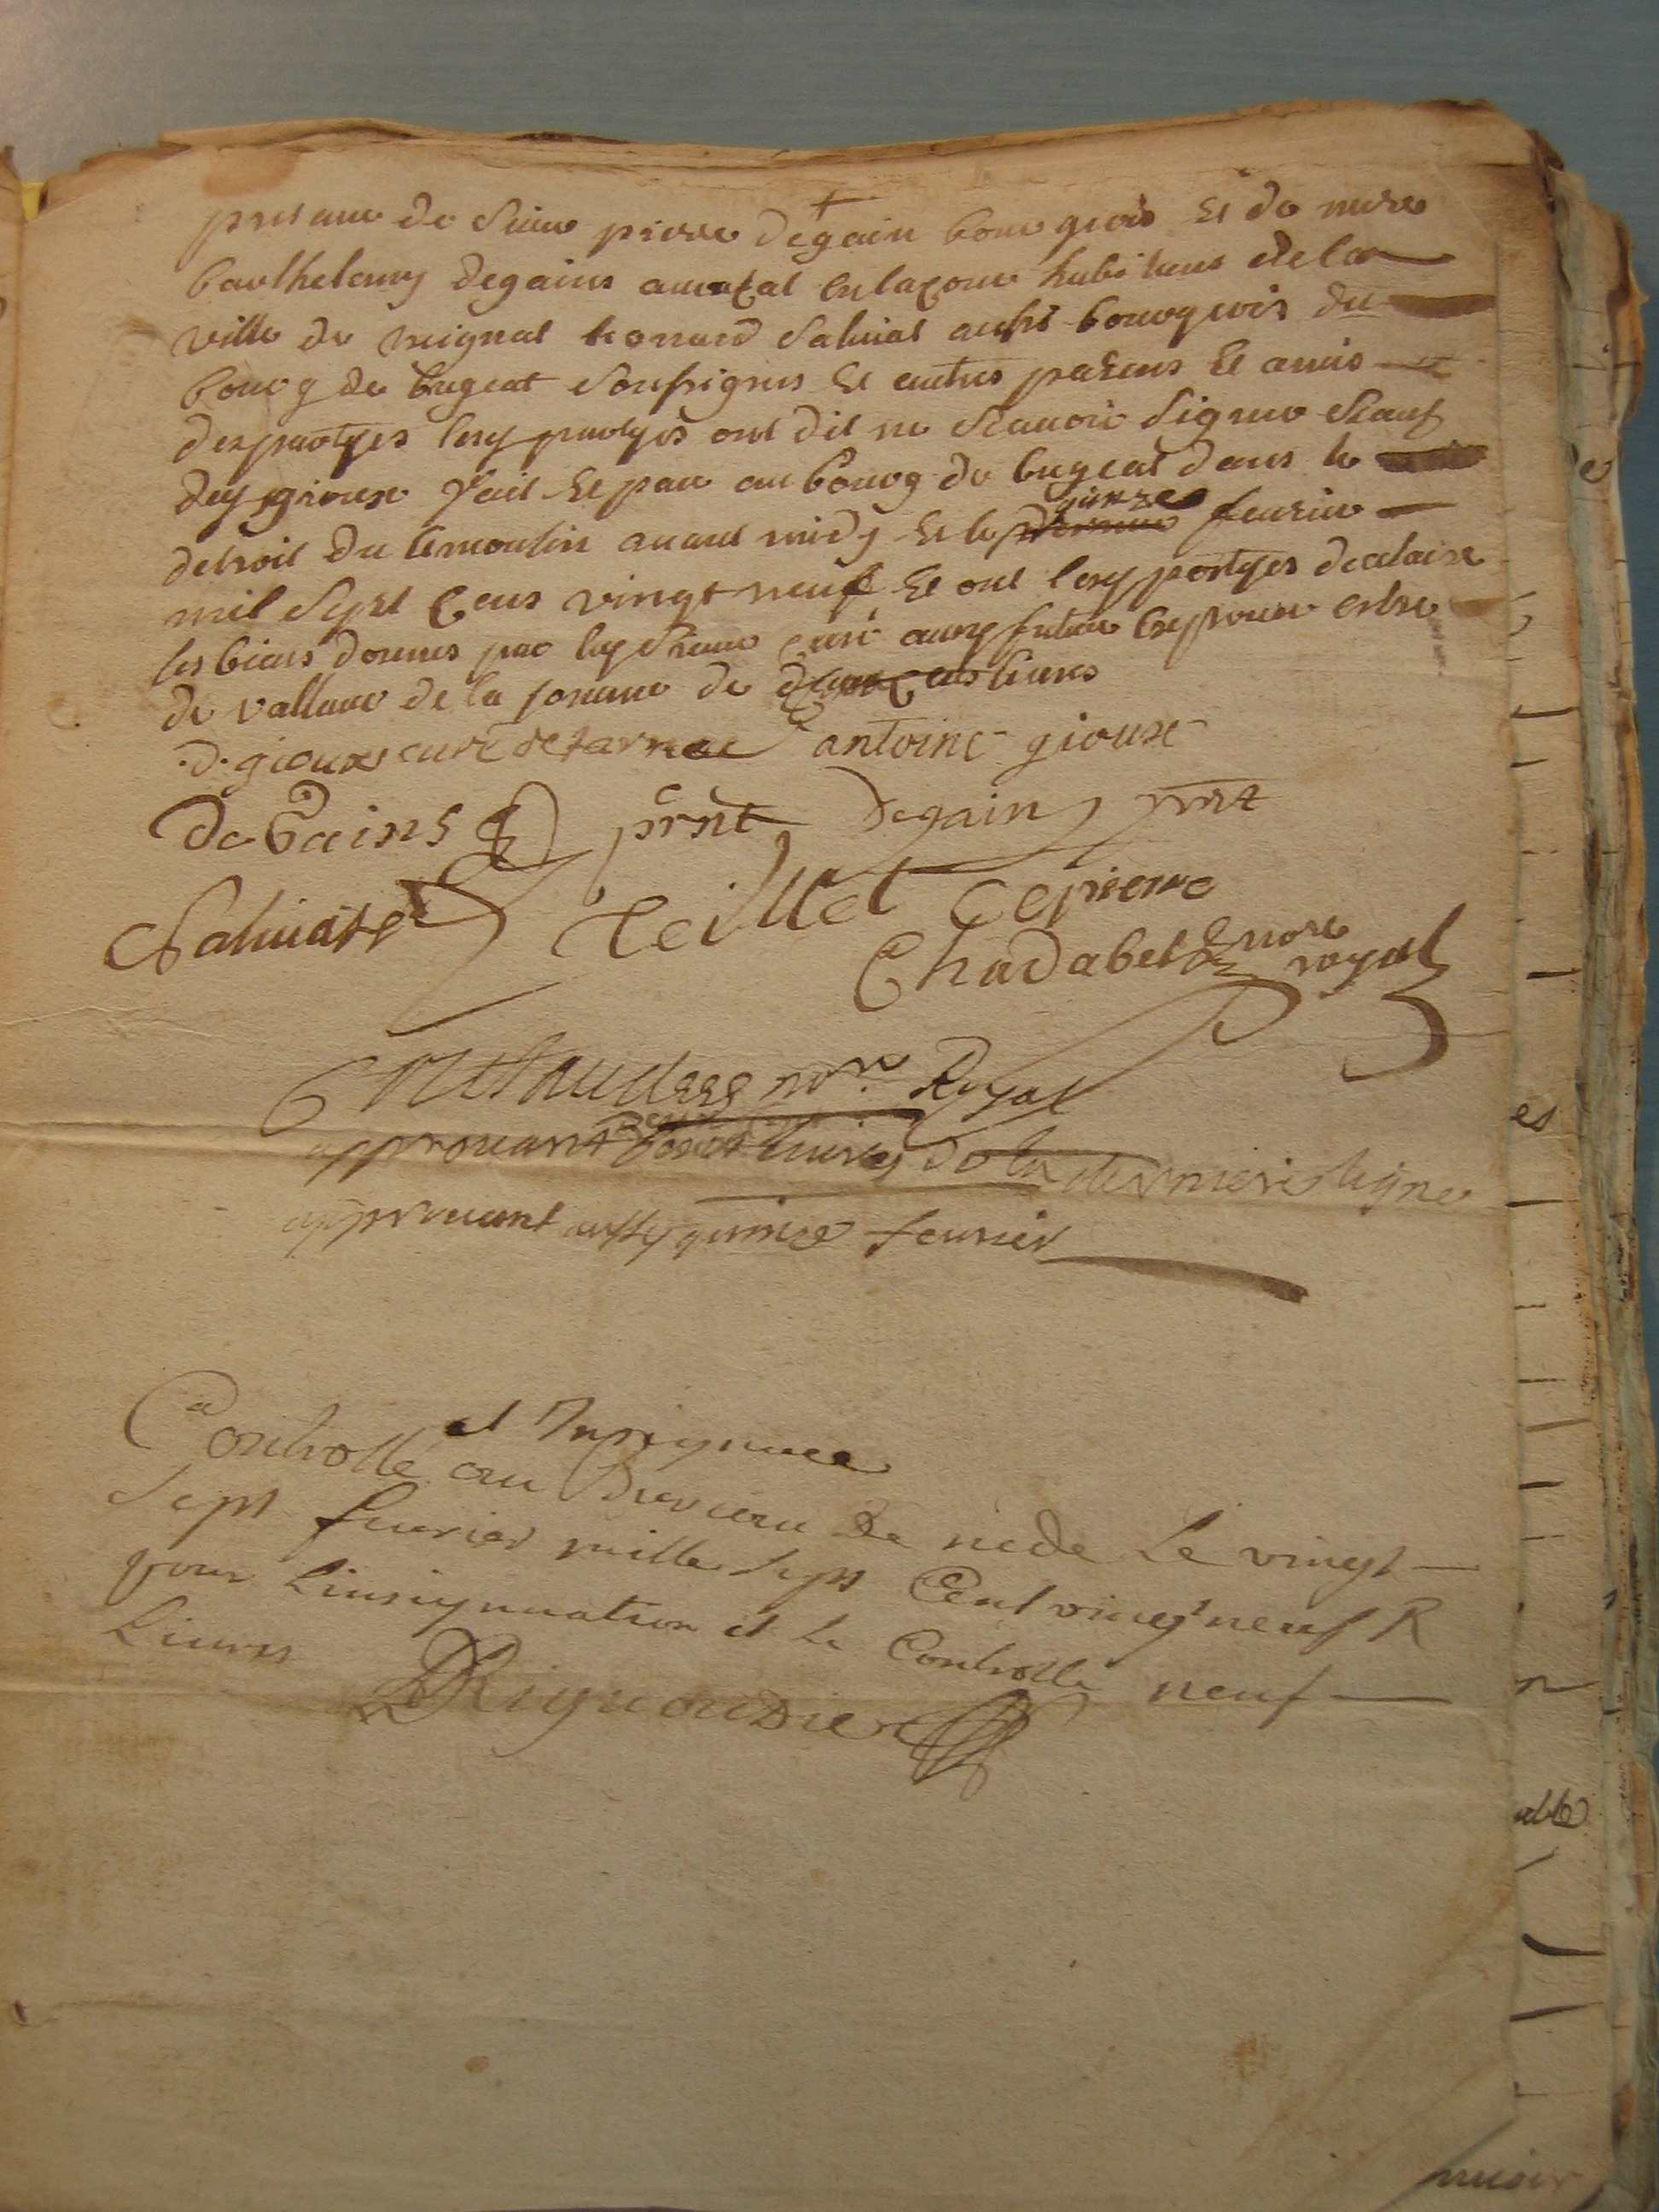 presance de Sieur pierre degain bourgeois et de mere
barthelemy degains auocat en lacour habitans de la
ville de meignat leonard Saluiat aussi bourgeois du
bourg de bugeat Soussignes et autres parens et amis
des partyes lesq partyes ont dit ne Scauoir Signer Sauf
desq gioux fait et passé au bourg de bugeat dans le
detroit du limousin auant midy et le quinze feurier
mil Sept Cens vingt neuf et ont lesq partyes declairé
les biens donnes par leq Sieur curé auxq futurs espoux estre
de valleur de la somme de Cens liures
D. gioux curé de tarnac antoine gioux
De Gains prnt Degain prnt
Saluiat Teillet Cepieme
Chadabet nore
royal
nore Royal
approuant liures de la derniere ligne
approuant aussy quinze feurier
et Insignué
Controllé au Bureau de nede Le vingt
Sept feurier mille Sept Cent vingt neuf R
pour Linsignuation et le Controlle neuf
Liures
Rignoudie